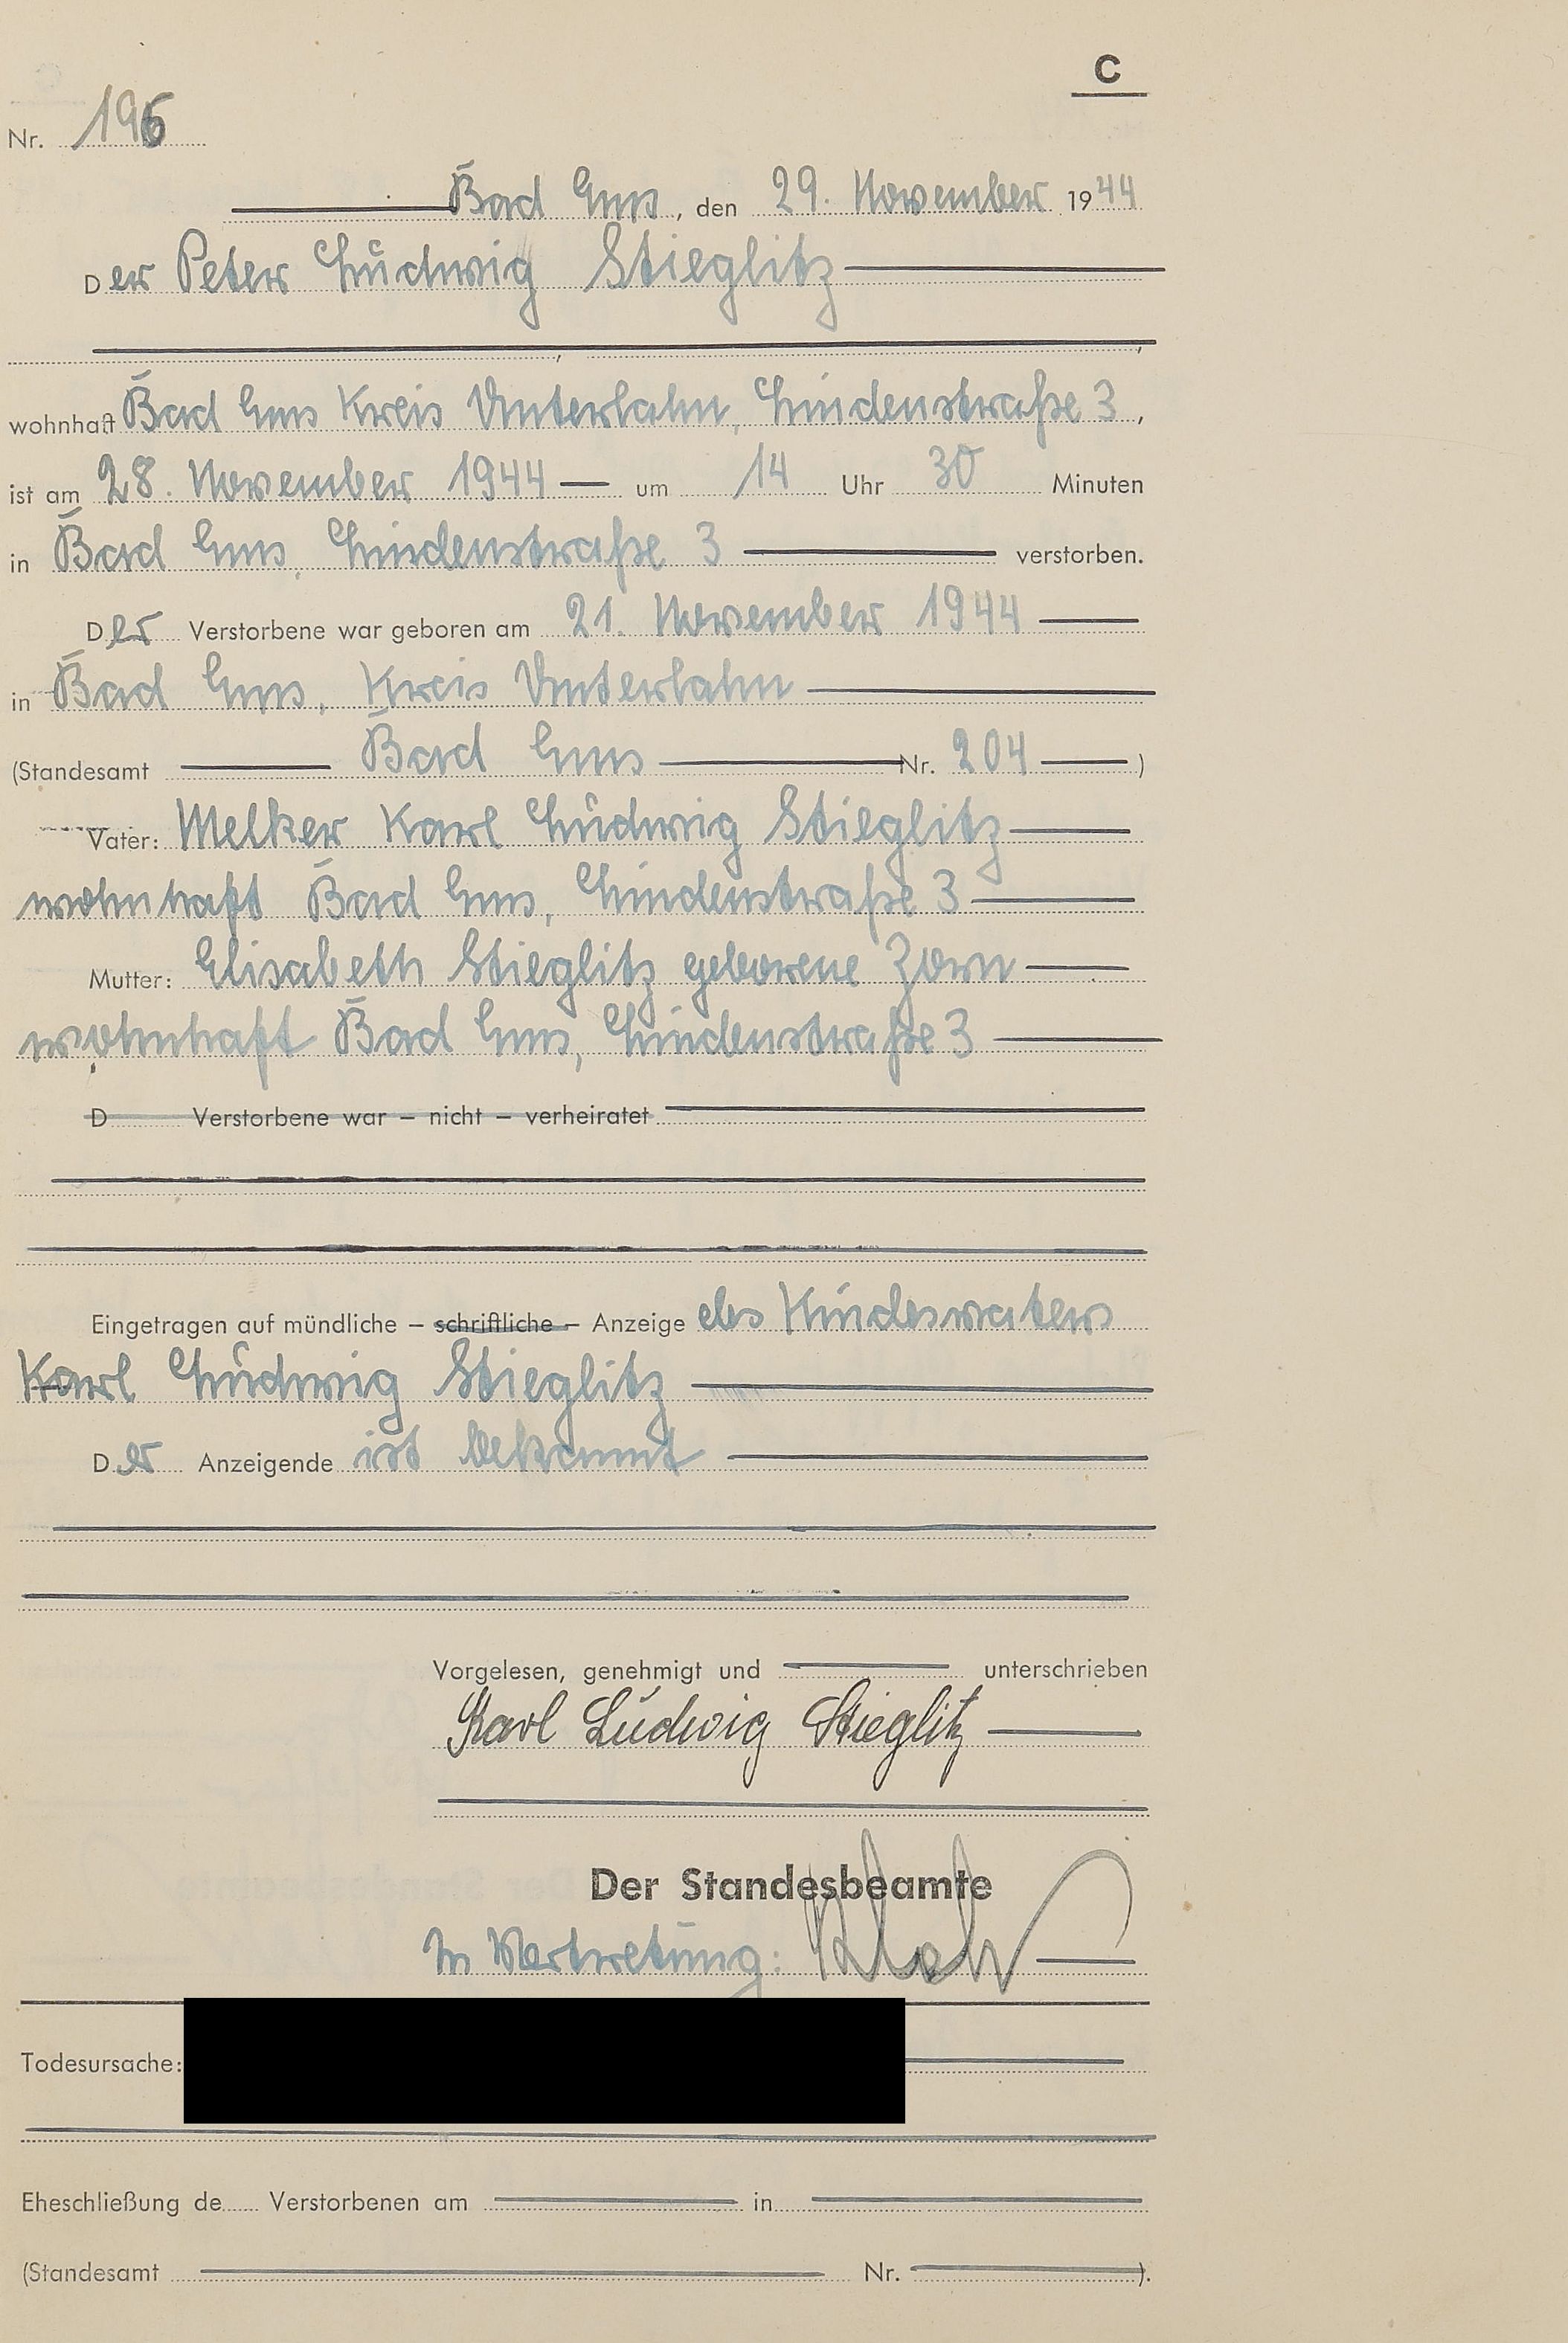 C
Nr. 196
Bad Ems, den 29. November 1944
Der Peter Ludwig Stieglitz
wohnhaft Bad Ems Kreis Unterlahn, Lindenstraße 3,
ist am 28. November 1944 um 14 Uhr 30 Minuten
in Bad Ems, Lindenstraße 3 verstorben.
Der Verstorbene war geboren am 21. November 1944
in Bad Ems, Kreis Unterlahn
(Standesamt Bad Ems Nr. 204)
Vater: Melker Karl Ludwig Stieglitz
wohnhaft Bad Ems, Lindenstraße 3
Mutter: Elisabeth Stieglitz geborene Zorn
wohnhaft Bad Ems, Lindenstraße 3
D Verstorbene war – nicht – verheiratet
Eingetragen auf mündliche – schriftliche – Anzeige des Kindesvaters
Karl Ludwig Stieglitz
Der Anzeigende ist bekannt
Vorgelesen, genehmigt und unterschrieben
Karl Ludwig Stieglitz
Der Standesbeamte
In Vertretung:
Todesursache:
Eheschließung de Verstorbenen am in
(Standesamt Nr. ).